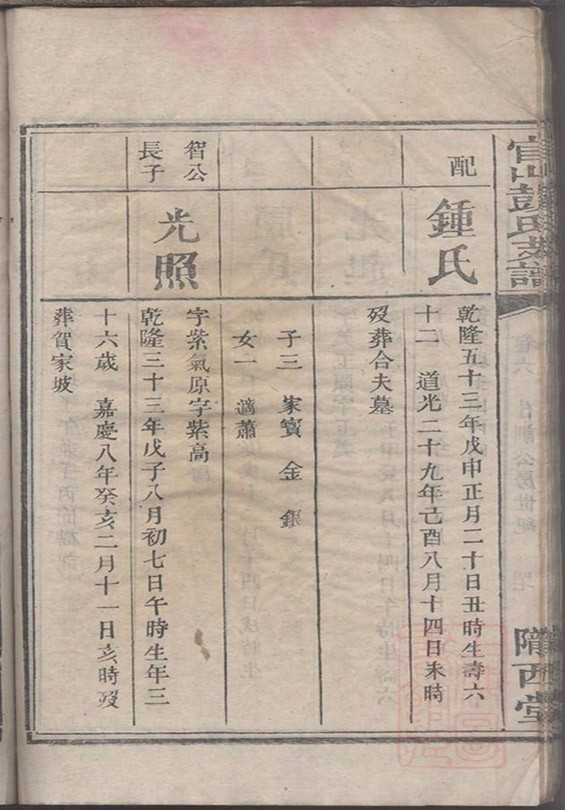 官山彭氏支譜
隴西堂
配
鍾氏
乾隆五十三年戊申正月二十日丑時生壽六
十二 道光二十九年己酉八月十四日未時
歿葬合夫墓
子三 家寶 金 銀
女一 適蕭
智公
長子
光照
字紫氣原字紫高
乾隆三十三年戊子八月初七日午時生年三
十六歲 嘉慶八年癸亥二月十一日亥時歿
葬賀家坡